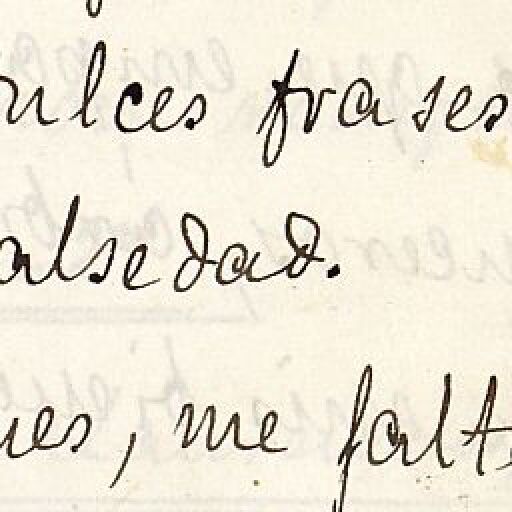 ulces frases
alsedad.
ues, me falt